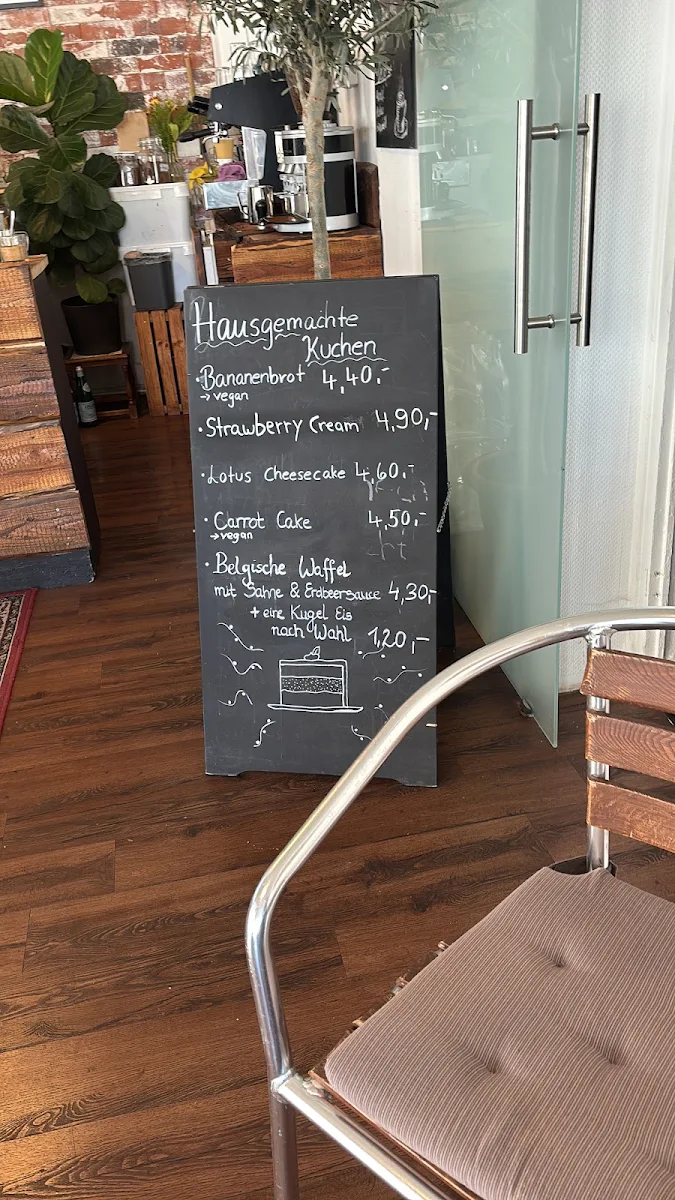 Hausgemachte
Kuchen
• Bananenbrot 4,40,-
→ vegan
• Strawberry Cream 4,90,-
• Lotus Cheesecake 4,60,-
• Carrot Cake 4,50,-
→ vegan
• Belgische Waffel
mit Sahne & Erdbeersauce 4,30,-
+ eine Kugel Eis
nach Wahl 1,20,-